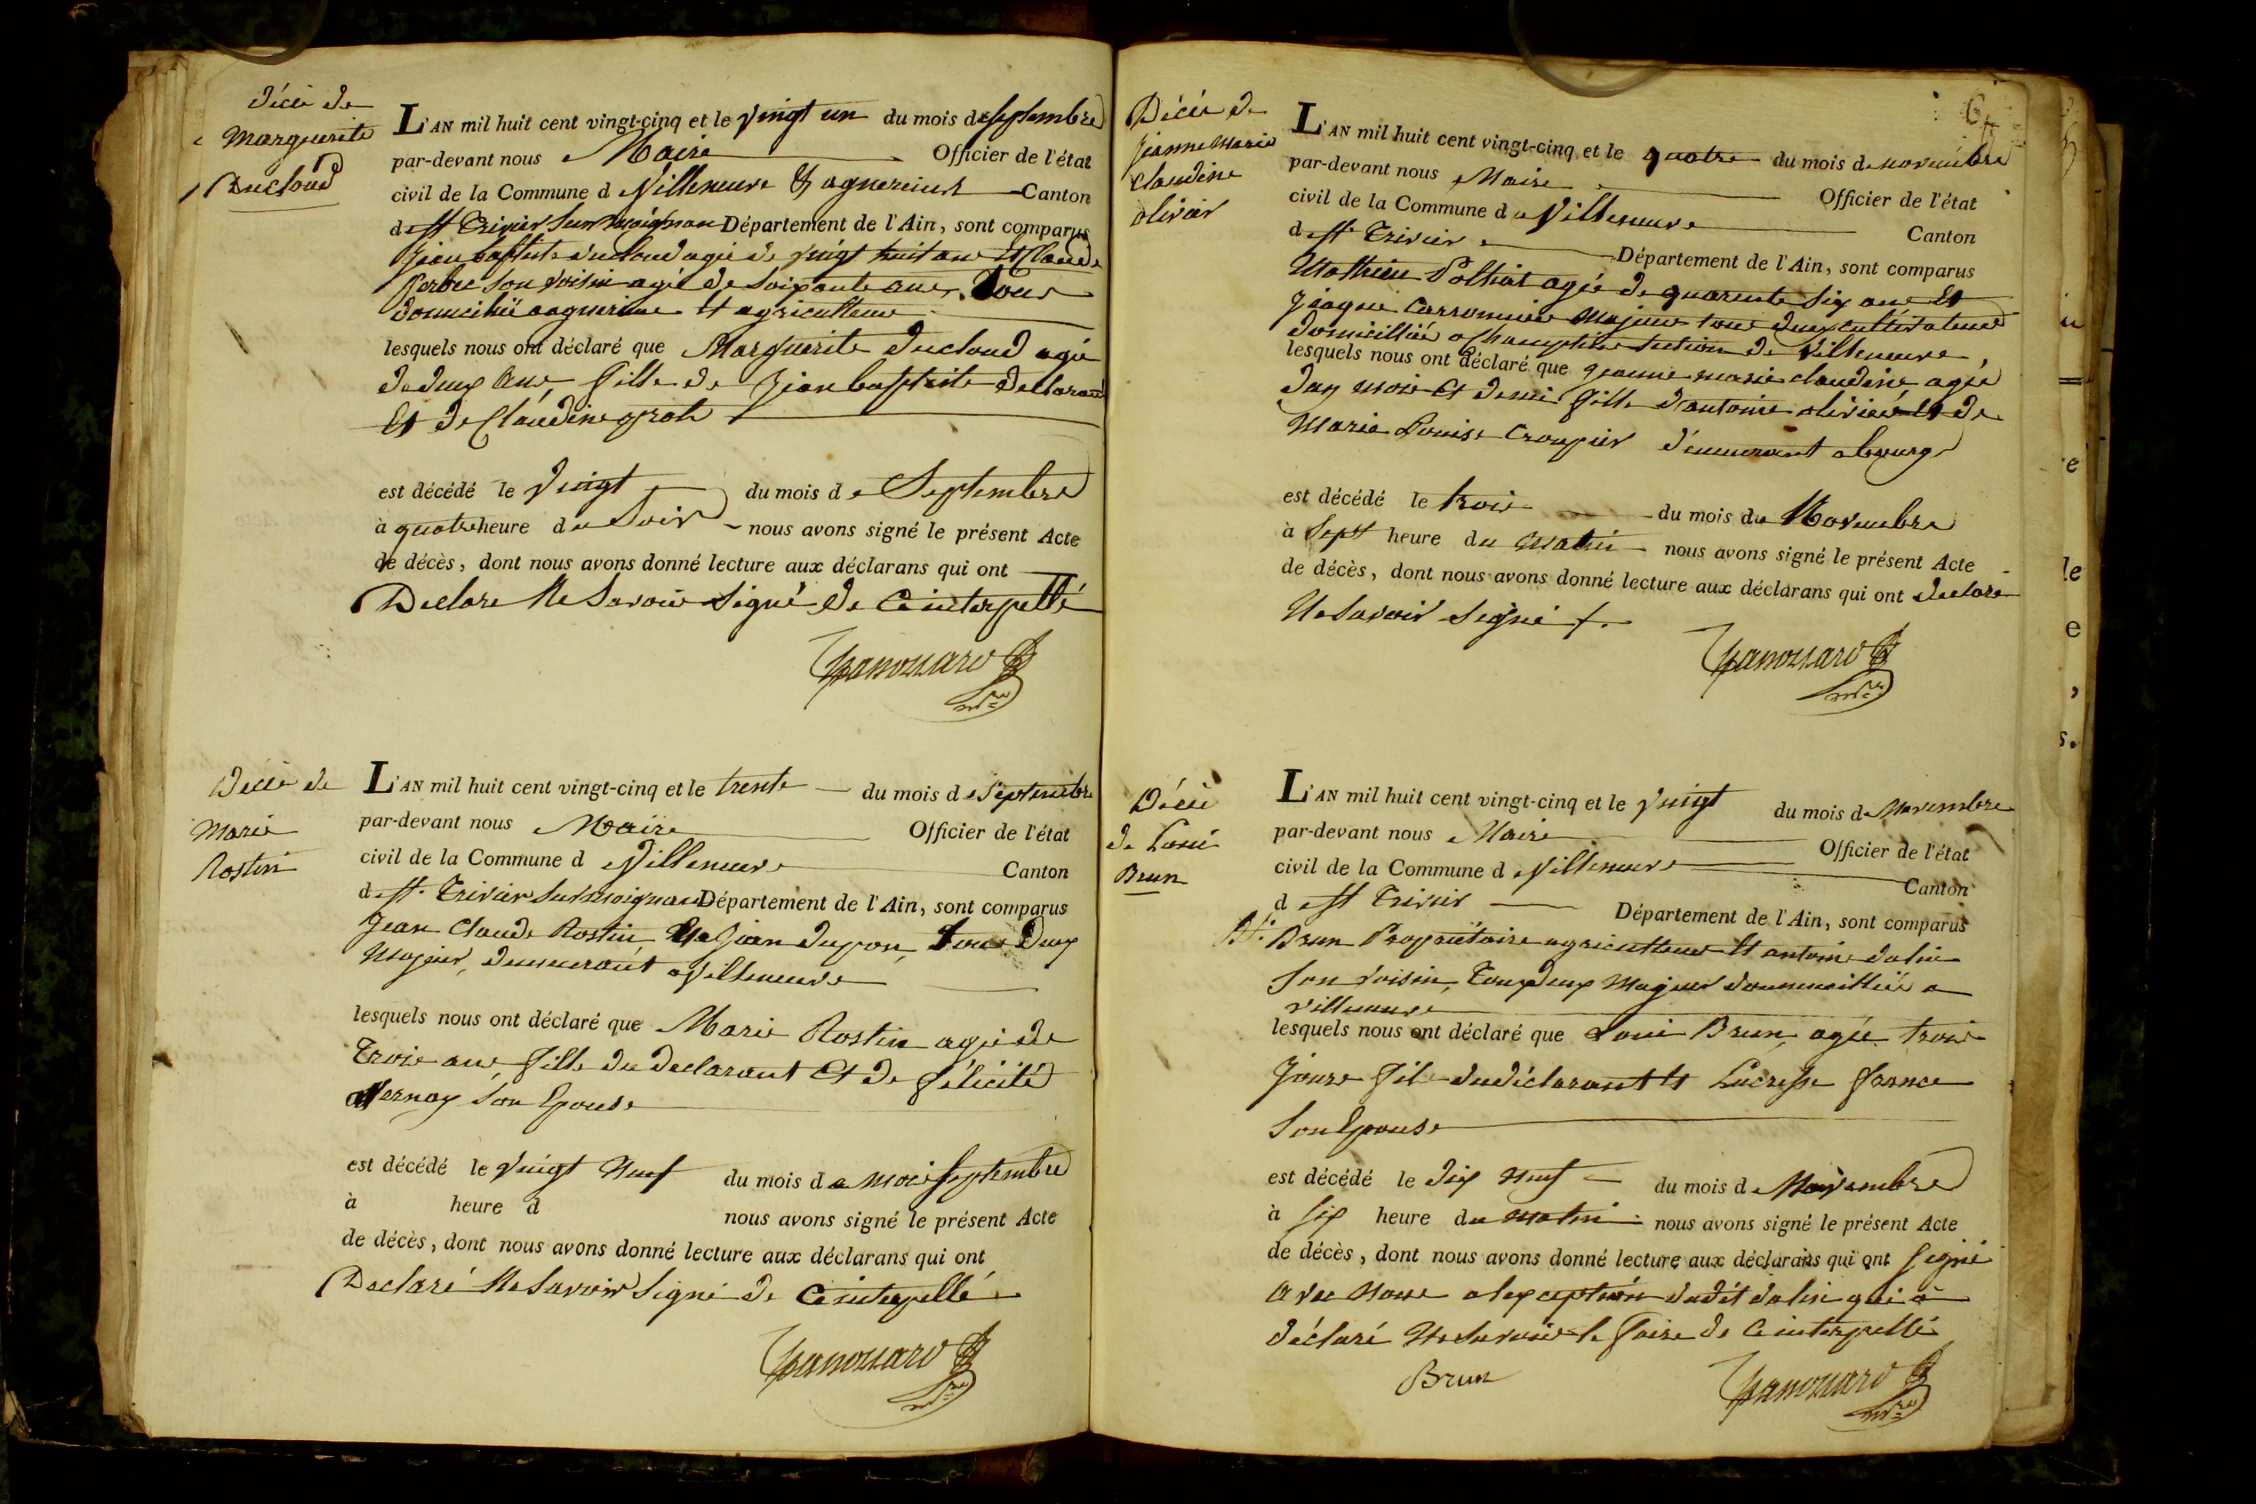 Décés de
Marguerite
Ducloud
L'AN mil huit cent vingt-cinq et le vingt un du mois de septembre
par-devant nous Maire Officier de l'état
civil de la Commune de Villeneuve & agnereins Canton
de St Trivier Sur moignan Département de l'Ain, sont comparus
Jean baptiste ducloud agé de vingt huit ans Et Claude
son voisin agé de Soixante ans, Tous
lesquels nous ont déclaré que Marguerite Ducloud agé
de deux Ans, fille de Jean baptiste Declarant
Et De Claudine
est décédé le Vingt du mois de Septembre
à quatre heure du Soir nous avons signé le présent Acte
de décès, dont nous avons donné lecture aux déclarans qui ont
Declare Ne Savoir Signé De Ce interpellé
Décés de
Marie
Rostin
L'AN mil huit cent vingt-cinq et le trente du mois de Septembre
par-devant nous Maire Officier de l'état
civil de la Commune de Villeneuve Canton
de St. Trivier Sur moignan Département de l'Ain, sont comparus
Jean Claude Rostin, Et Jean dupon, tous Deux
Majeur, demeurant a Villeneuve
lesquels nous ont déclaré que Marie Rostin agé de
Trois ans, fille du Declarant Et De félicité
Vernay Son Epouse
est décédé le Vingt Neuf du mois de mois Septembre
à heure d nous avons signé le présent Acte
de décès, dont nous avons donné lecture aux déclarans qui ont
Declaré Ne Savoir Signé De Ce interpellé
Décés de
Jeanne Marie
Claudine
olivier
64
L'AN mil huit cent vingt-cinq et le quatre du mois de novembre
par-devant nous Maire Officier de l'état
civil de la Commune de Villeneuve Canton
de St. Trivier Département de l'Ain, sont comparus
Mathieu Polliat agée de quarente Six ans Et
Majeur tous deux cultivateurs
domicilliés a section de Villeneuve,
lesquels nous ont déclaré que Jeanne marie claudine agée
d'un mois Et demi fille d'antoine olivier Et de
Marie Louise Croupier demeurant a bourg
est décédé le trois du mois de Novembre
à Sept heure du Matin nous avons signé le présent Acte
de décès, dont nous avons donné lecture aux déclarans qui ont declare
Ne Savoir Signé
Décés
de Loui
Brun
L'AN mil huit cent vingt-cinq et le Vingt du mois de Novembre
par-devant nous Maire Officier de l'état
civil de la Commune de Villeneuve Canton
de St Trivier Département de l'Ain, sont comparus
Brun Propriétaire agriculteur Et antoine dalin
Son Voisin, Tous deux Majeur domicilliés a
Villeneuve
lesquels nous ont déclaré que Loui Brun, agée trois
Jours fils du déclarant Et Lucresse france
Son Epouse
est décédé le dix neuf du mois de Novembre
à Six heure du matin nous avons signé le présent Acte
de décès, dont nous avons donné lecture aux déclarans qui ont Signé
avec Nous a lexception dudit dalin qui a
déclaré Ne Savoir le faire de Ce interpellé
Brun